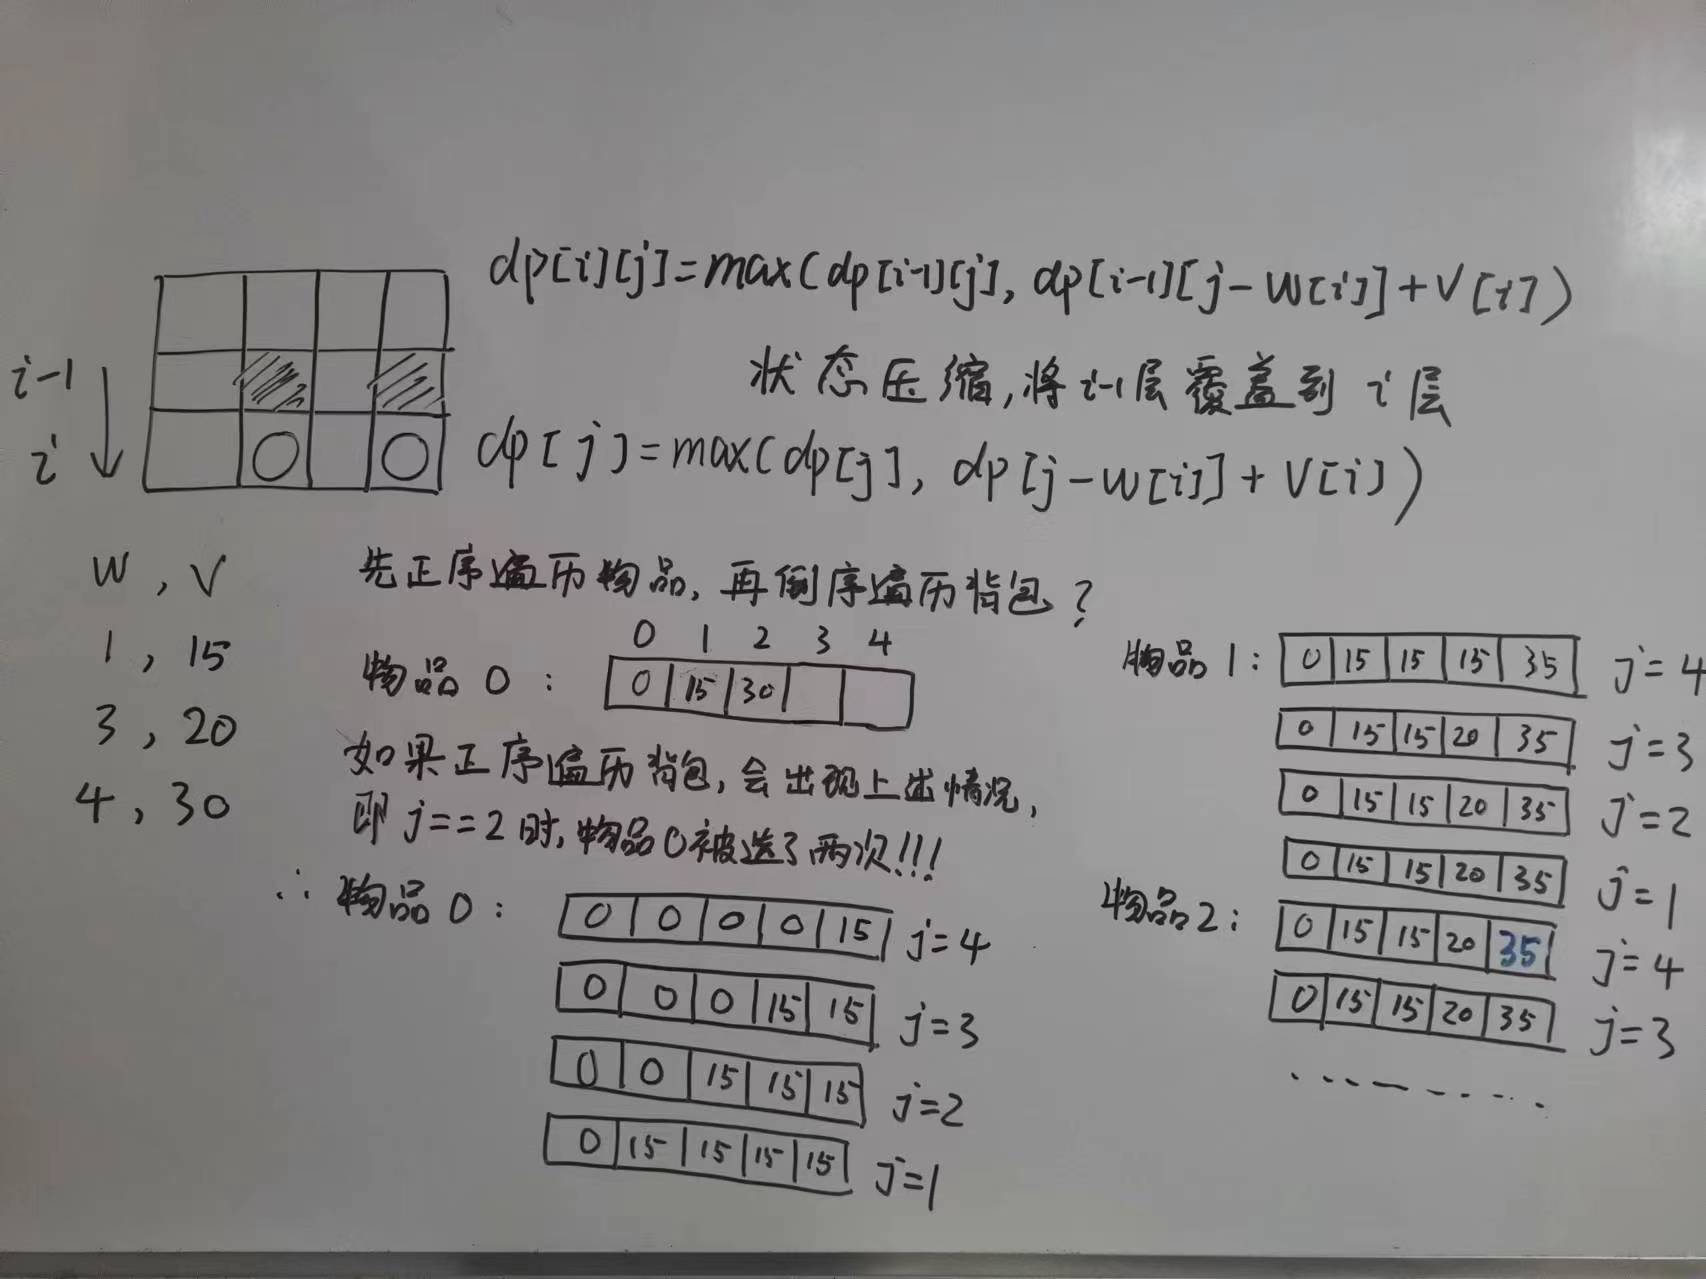 dp[i][j]=max(dp[i-1][j], dp[i-1][j-w[i]]+v[i])
i-1
状态压缩,将i-1层覆盖到i层
i
dp[j]=max(dp[j], dp[j-w[i]]+v[i])
w, v
1, 15
3, 20
4, 30
先正序遍历物品,再倒序遍历背包?
0 1 2 3 4
物品0: 0 15 30
如果正序遍历背包,会出现上述情况,
即j==2时,物品0被选了两次!!!
∴物品0: 0 0 0 0 15 j=4
0 0 0 15 15 j=3
0 0 15 15 15 j=2
0 15 15 15 15 j=1
物品1: 0 15 15 15 35 j=4
0 15 15 20 35 j=3
0 15 15 20 35 j=2
0 15 15 20 35 j=1
物品2: 0 15 15 20 35 j=4
0 15 15 20 35 j=3
.........